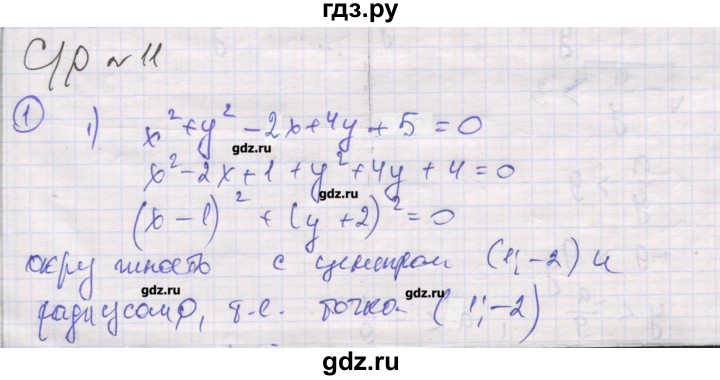 гдз.ру
С/р №11
① 1) x² + y² - 2x + 4y + 5 = 0
gdz.ru gdz.ru
x² - 2x + 1 + y² + 4y + 4 = 0
(x - 1)² + (y + 2)² = 0
окружность с центром (1; -2) и
gdz.ru gdz.ru
радиусом 0, т.е. точка (1; -2)
gdz.ru